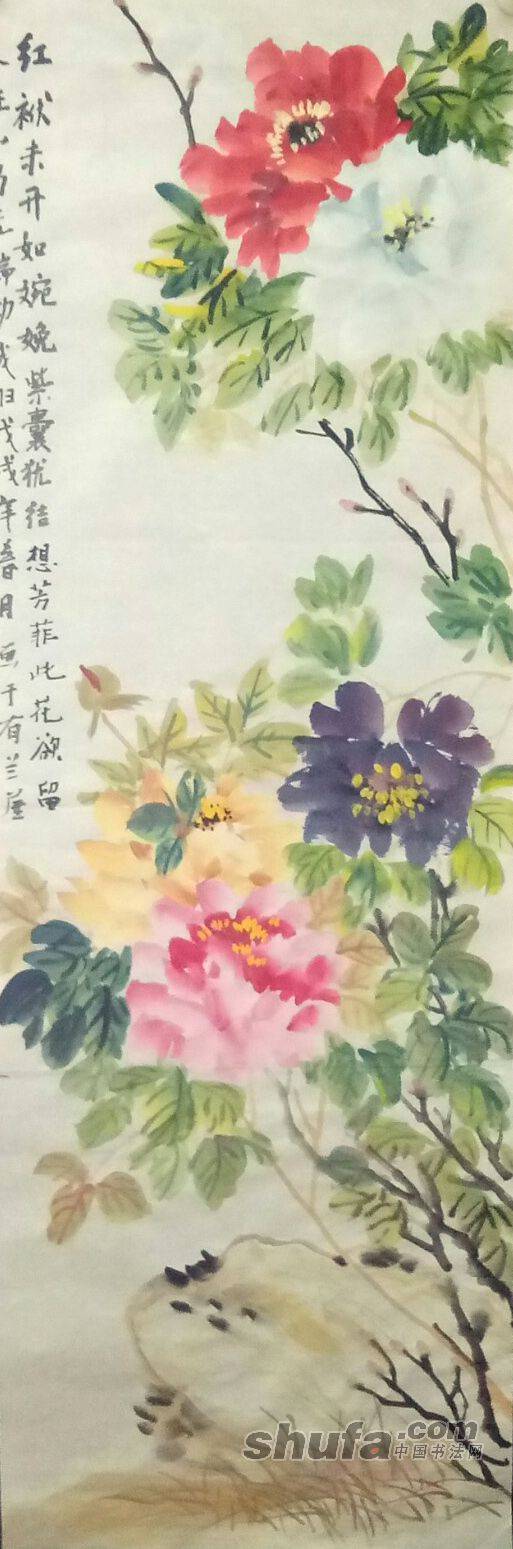 红袱未开如婉娩紫囊犹结想芳菲此花欲留
人住山鸟无端劝我归戊戌年春月画于有兰
shufa.com
中国书法网